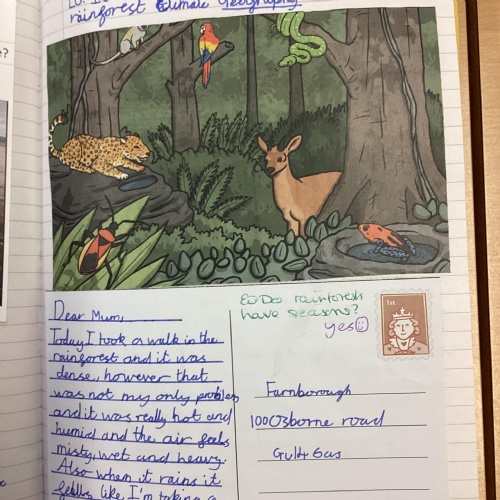 rainforest Climate Geography
e?
Dear Mum,
Today I took a walk in the
rainforest and it was
dense, however that
was not my only problem
and it was really hot and
humid and the air feels
misty, wet and heavy.
Also when it rains it
feels like I'm taking a
Do rainforests
have seasons?
yes
1st
Farnborough
100 Osborne road
Gu14 6as